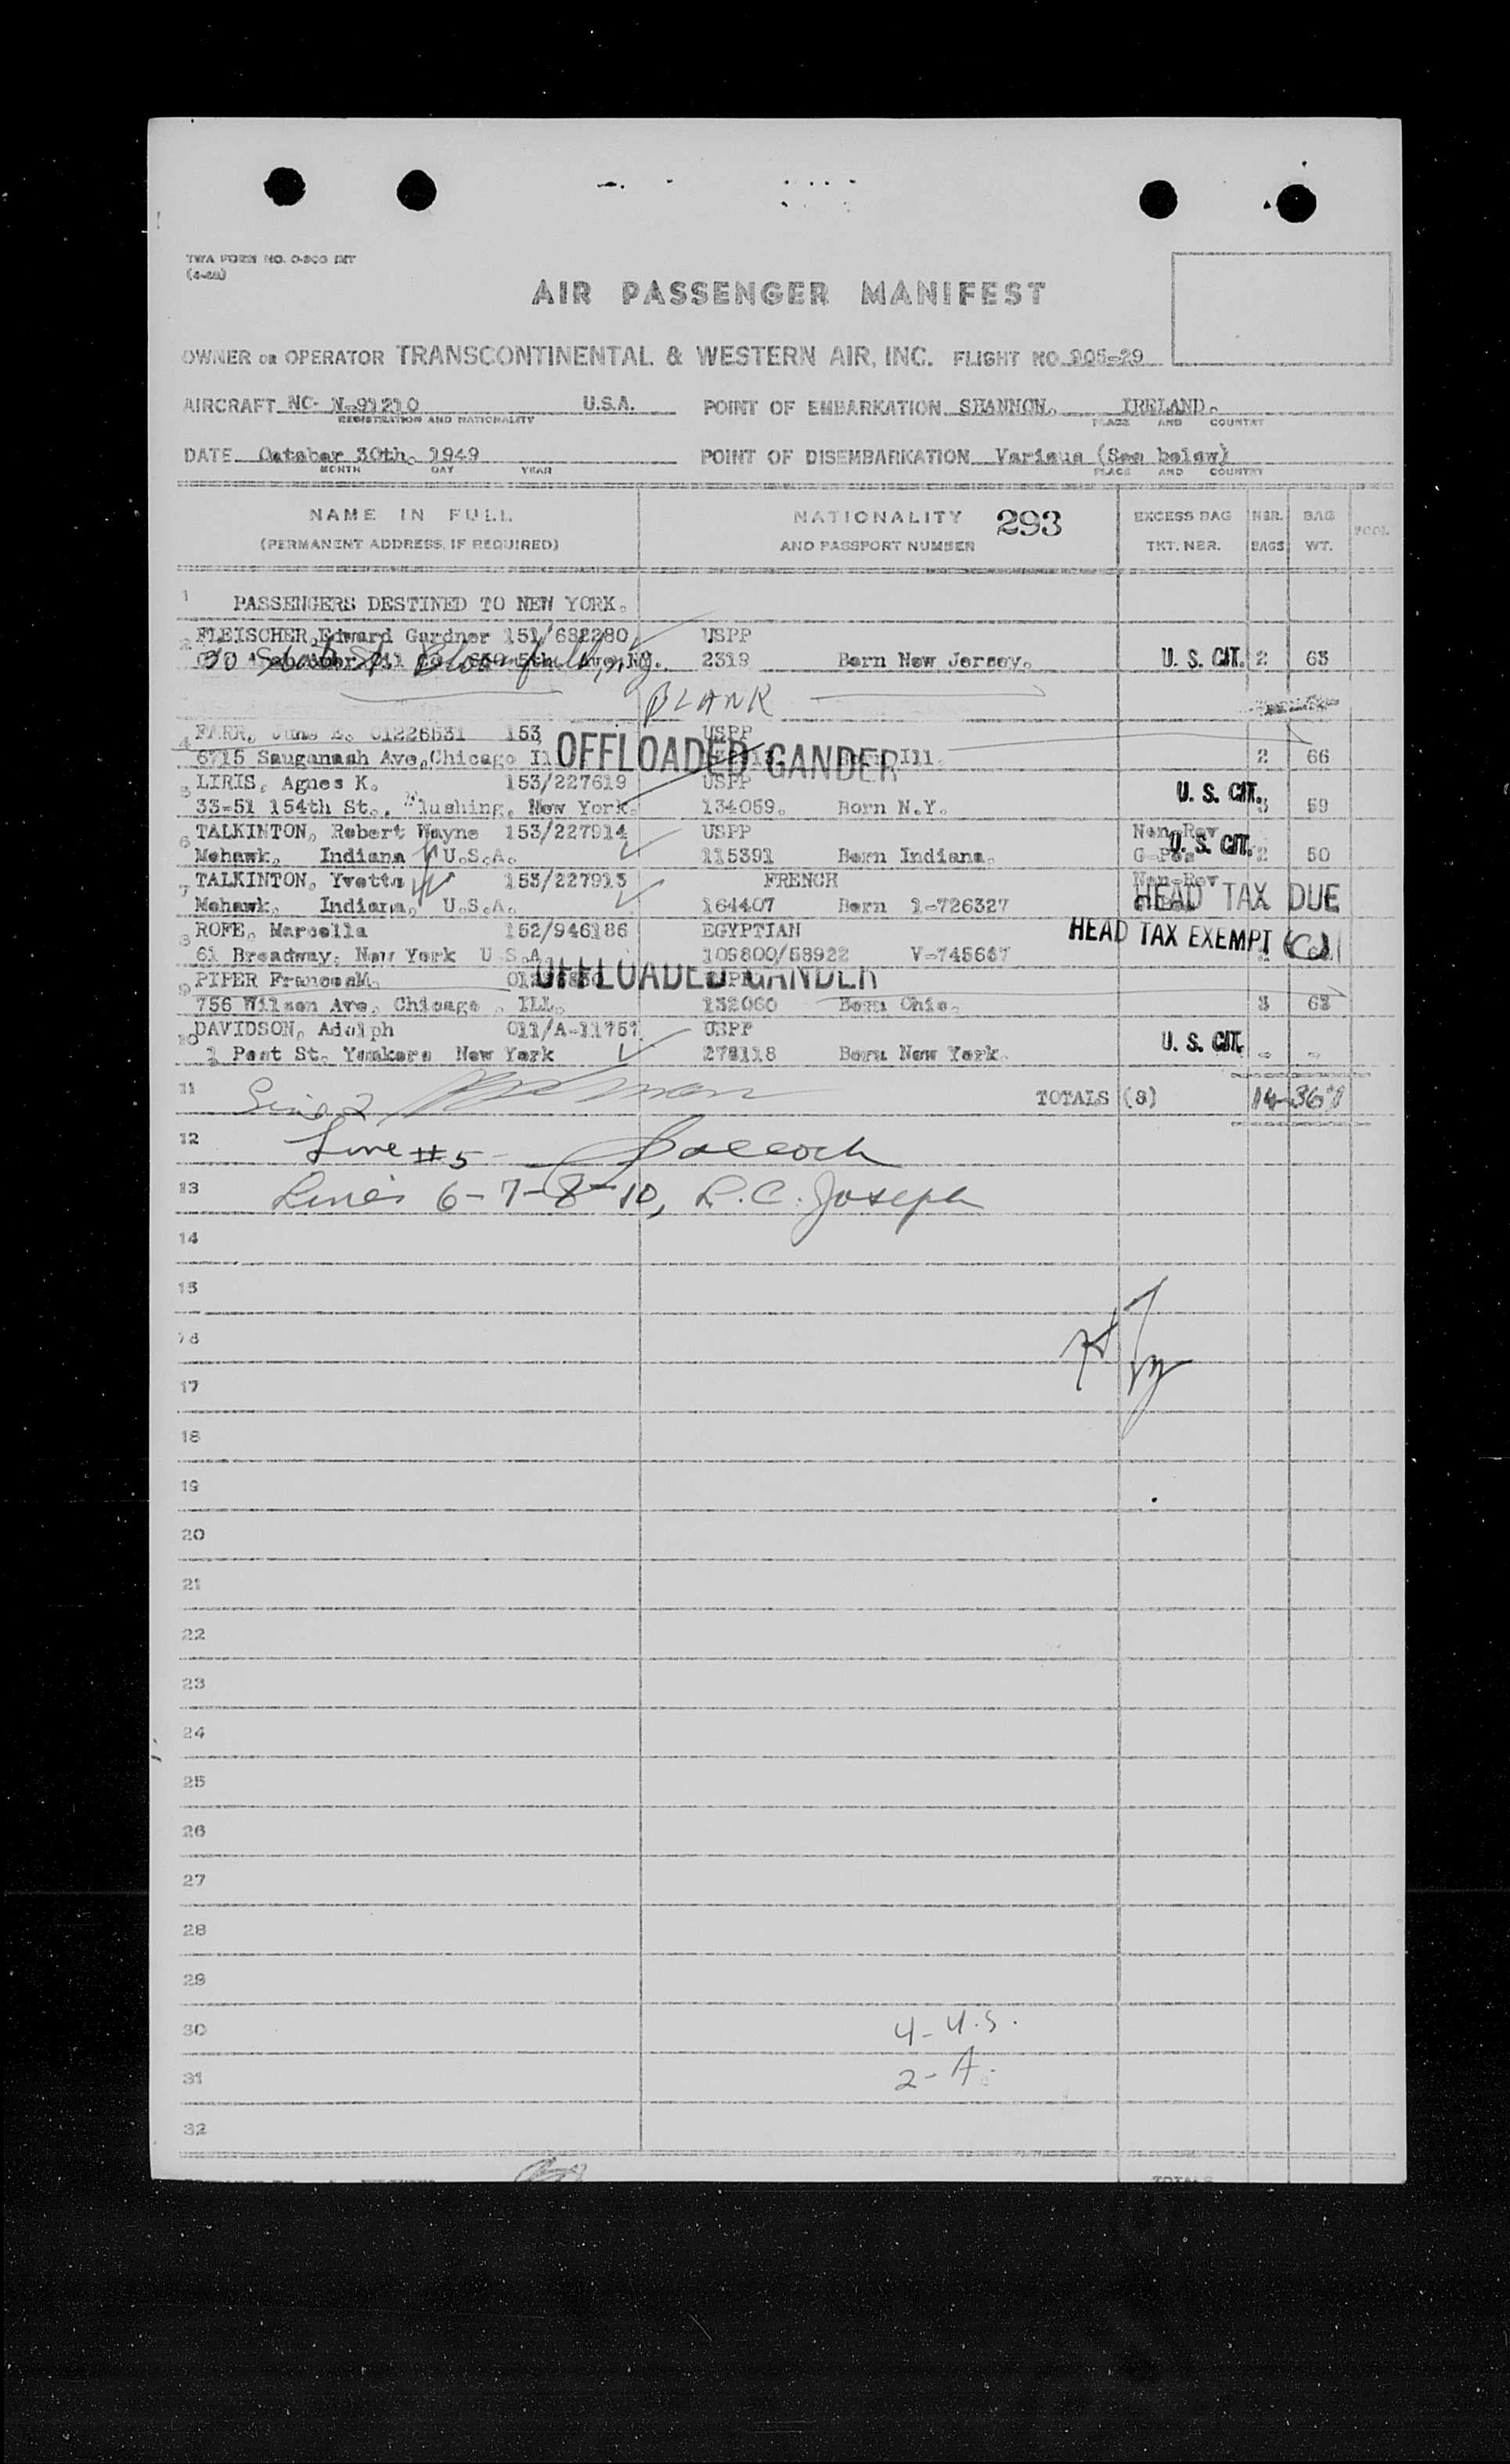 TWA FORM NO. O-800 INT
(4-48)
AIR PASSENGER MANIFEST
OWNER OR OPERATOR TRANSCONTINENTAL & WESTERN AIR, INC. FLIGHT NO 905-29
AIRCRAFT NC- N-91210 U.S.A. POINT OF EMBARKATION SHANNON, IRELAND.
REGISTRATION AND NATIONALITY PLACE AND COUNTRY
DATE October 30th, 1949 POINT OF DISEMBARKATION Various (See below)
MONTH DAY YEAR PLACE AND COUNTRY
NAME IN FULL NATIONALITY 293 EXCESS BAG NBR. BAG
(PERMANENT ADDRESS, IF REQUIRED) AND PASSPORT NUMBER TKT. NBR. BAGS WT.
1 PASSENGERS DESTINED TO NEW YORK.
2 FLEISCHER, Edward Gardner 151/682280 USPP
2319 Born New Jersey. U. S. CIT. 2 63
BLANK
4 FARR, June E. 01226531 153 USPP
OFFLOADED GANDER
6715 Sauganash Ave, Chicago Ill. 2 66
5 LIRIS, Agnes K. 153/227619 USPP
33-51 154th St., Flushing, New York. 134059. Born N.Y. U. S. CIT. 3 59
6 TALKINTON, Robert Wayne 153/227914 USPP Non-Rev
Mohawk, Indiana U.S.A. 115391 Born Indiana. U. S. CIT. 2 50
7 TALKINTON, Yvette 153/227913 FRENCH Non-Rev
Mohawk, Indiana, U.S.A. 164407 Born 1-726327 HEAD TAX DUE
8 ROFE, Marcella 152/946186 EGYPTIAN HEAD TAX EXEMPT
61 Broadway, New York U.S.A. 109800/58922 V-745667
OFFLOADED GANDER
9 PIPER Frances M.
756 Wilson Ave, Chicago, ILL. 132060 Born Ohio. 3 63
10 DAVIDSON, Adolph 011/A-11757 USPP
1 Post St. Yonkers New York 278118 Born New York. U. S. CIT. - -
11 Line 2 TOTALS (8) 14
12 Line #5
13 Lines 6-7-8-10, R.C. Joseph
14
15
16
17
18
19
20
21
22
23
24
25
26
27
28
29
30 4-U.S.
31 2-A.
32
TOTALS